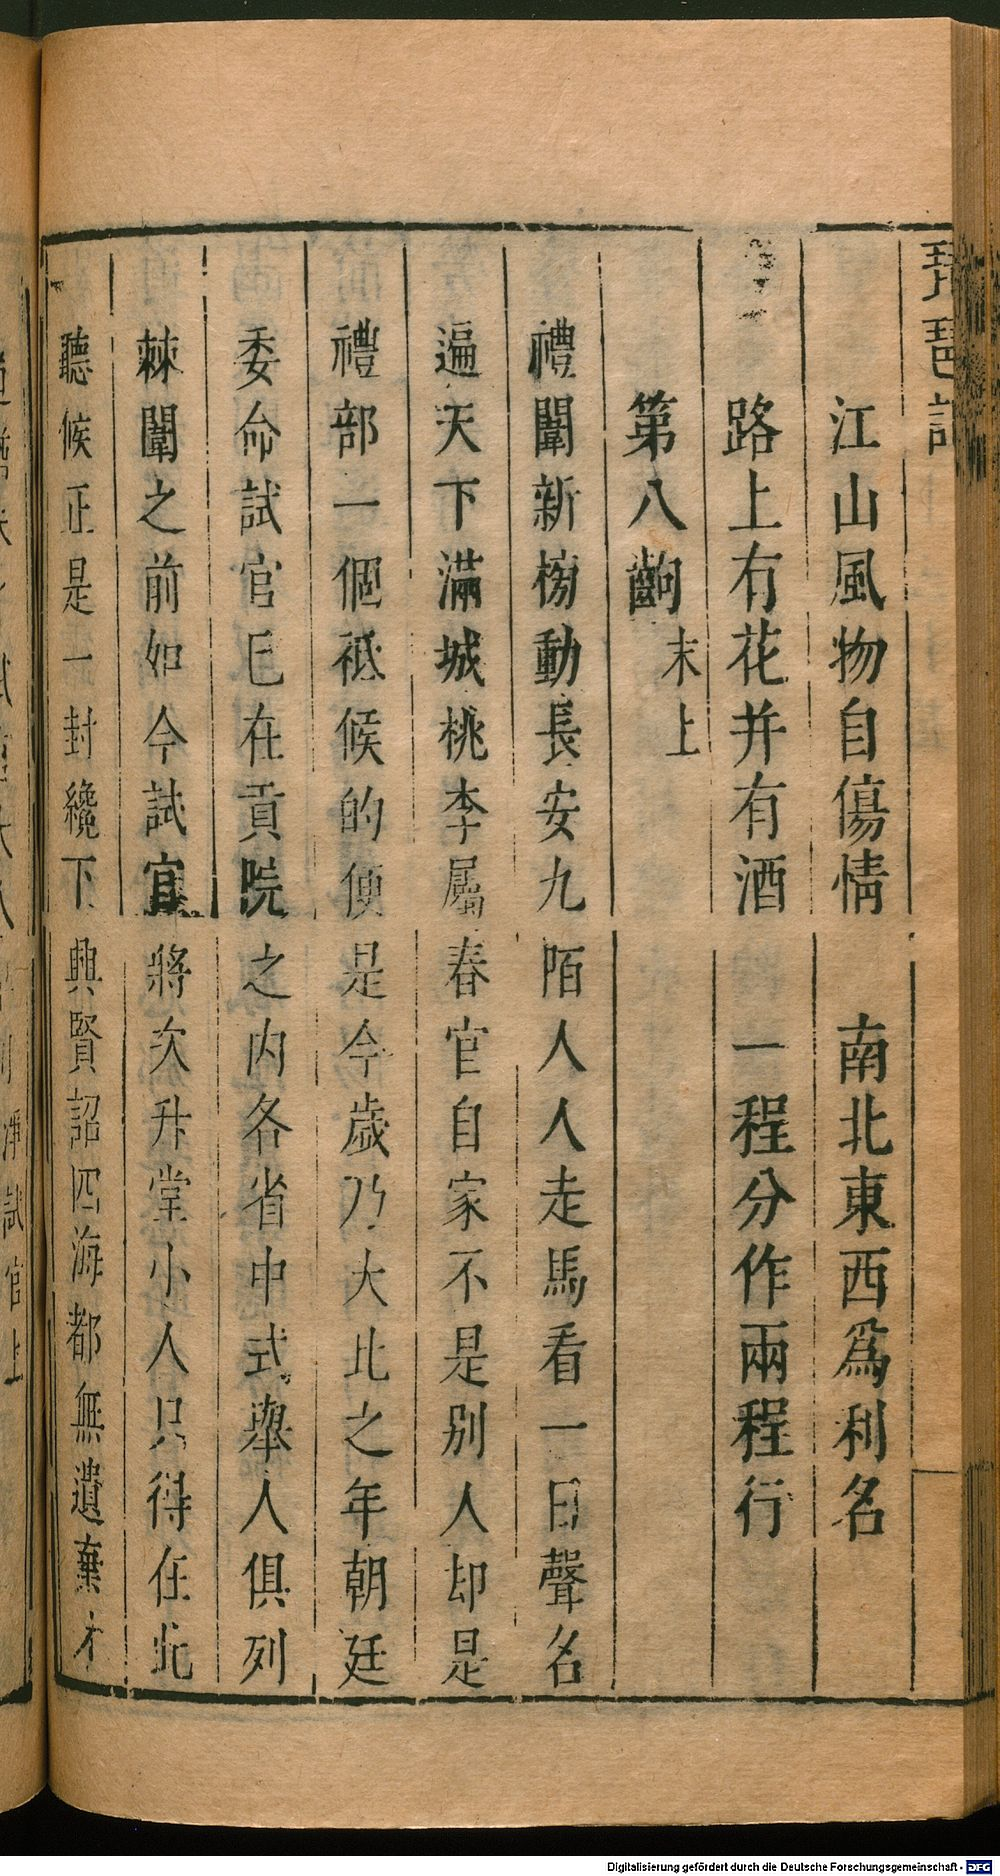 琵琶記
江山風物自傷情　南北東西爲利名
路上有花并有酒　一程分作兩程行
第八齣 末上
禮闈新榜動長安九陌人人走馬看一日聲名
遍天下滿城桃李屬春官自家不是別人却是
禮部一個祗候的便是今歲乃大比之年朝廷
委命試官已在貢院之內各省中式舉人俱列
棘闈之前如今試官將次升堂小人只得在此
聽候正是一封纔下興賢詔四海都無遺棄才
淨試官上
Digitalisierung gefördert durch die Deutsche Forschungsgemeinschaft - DFG